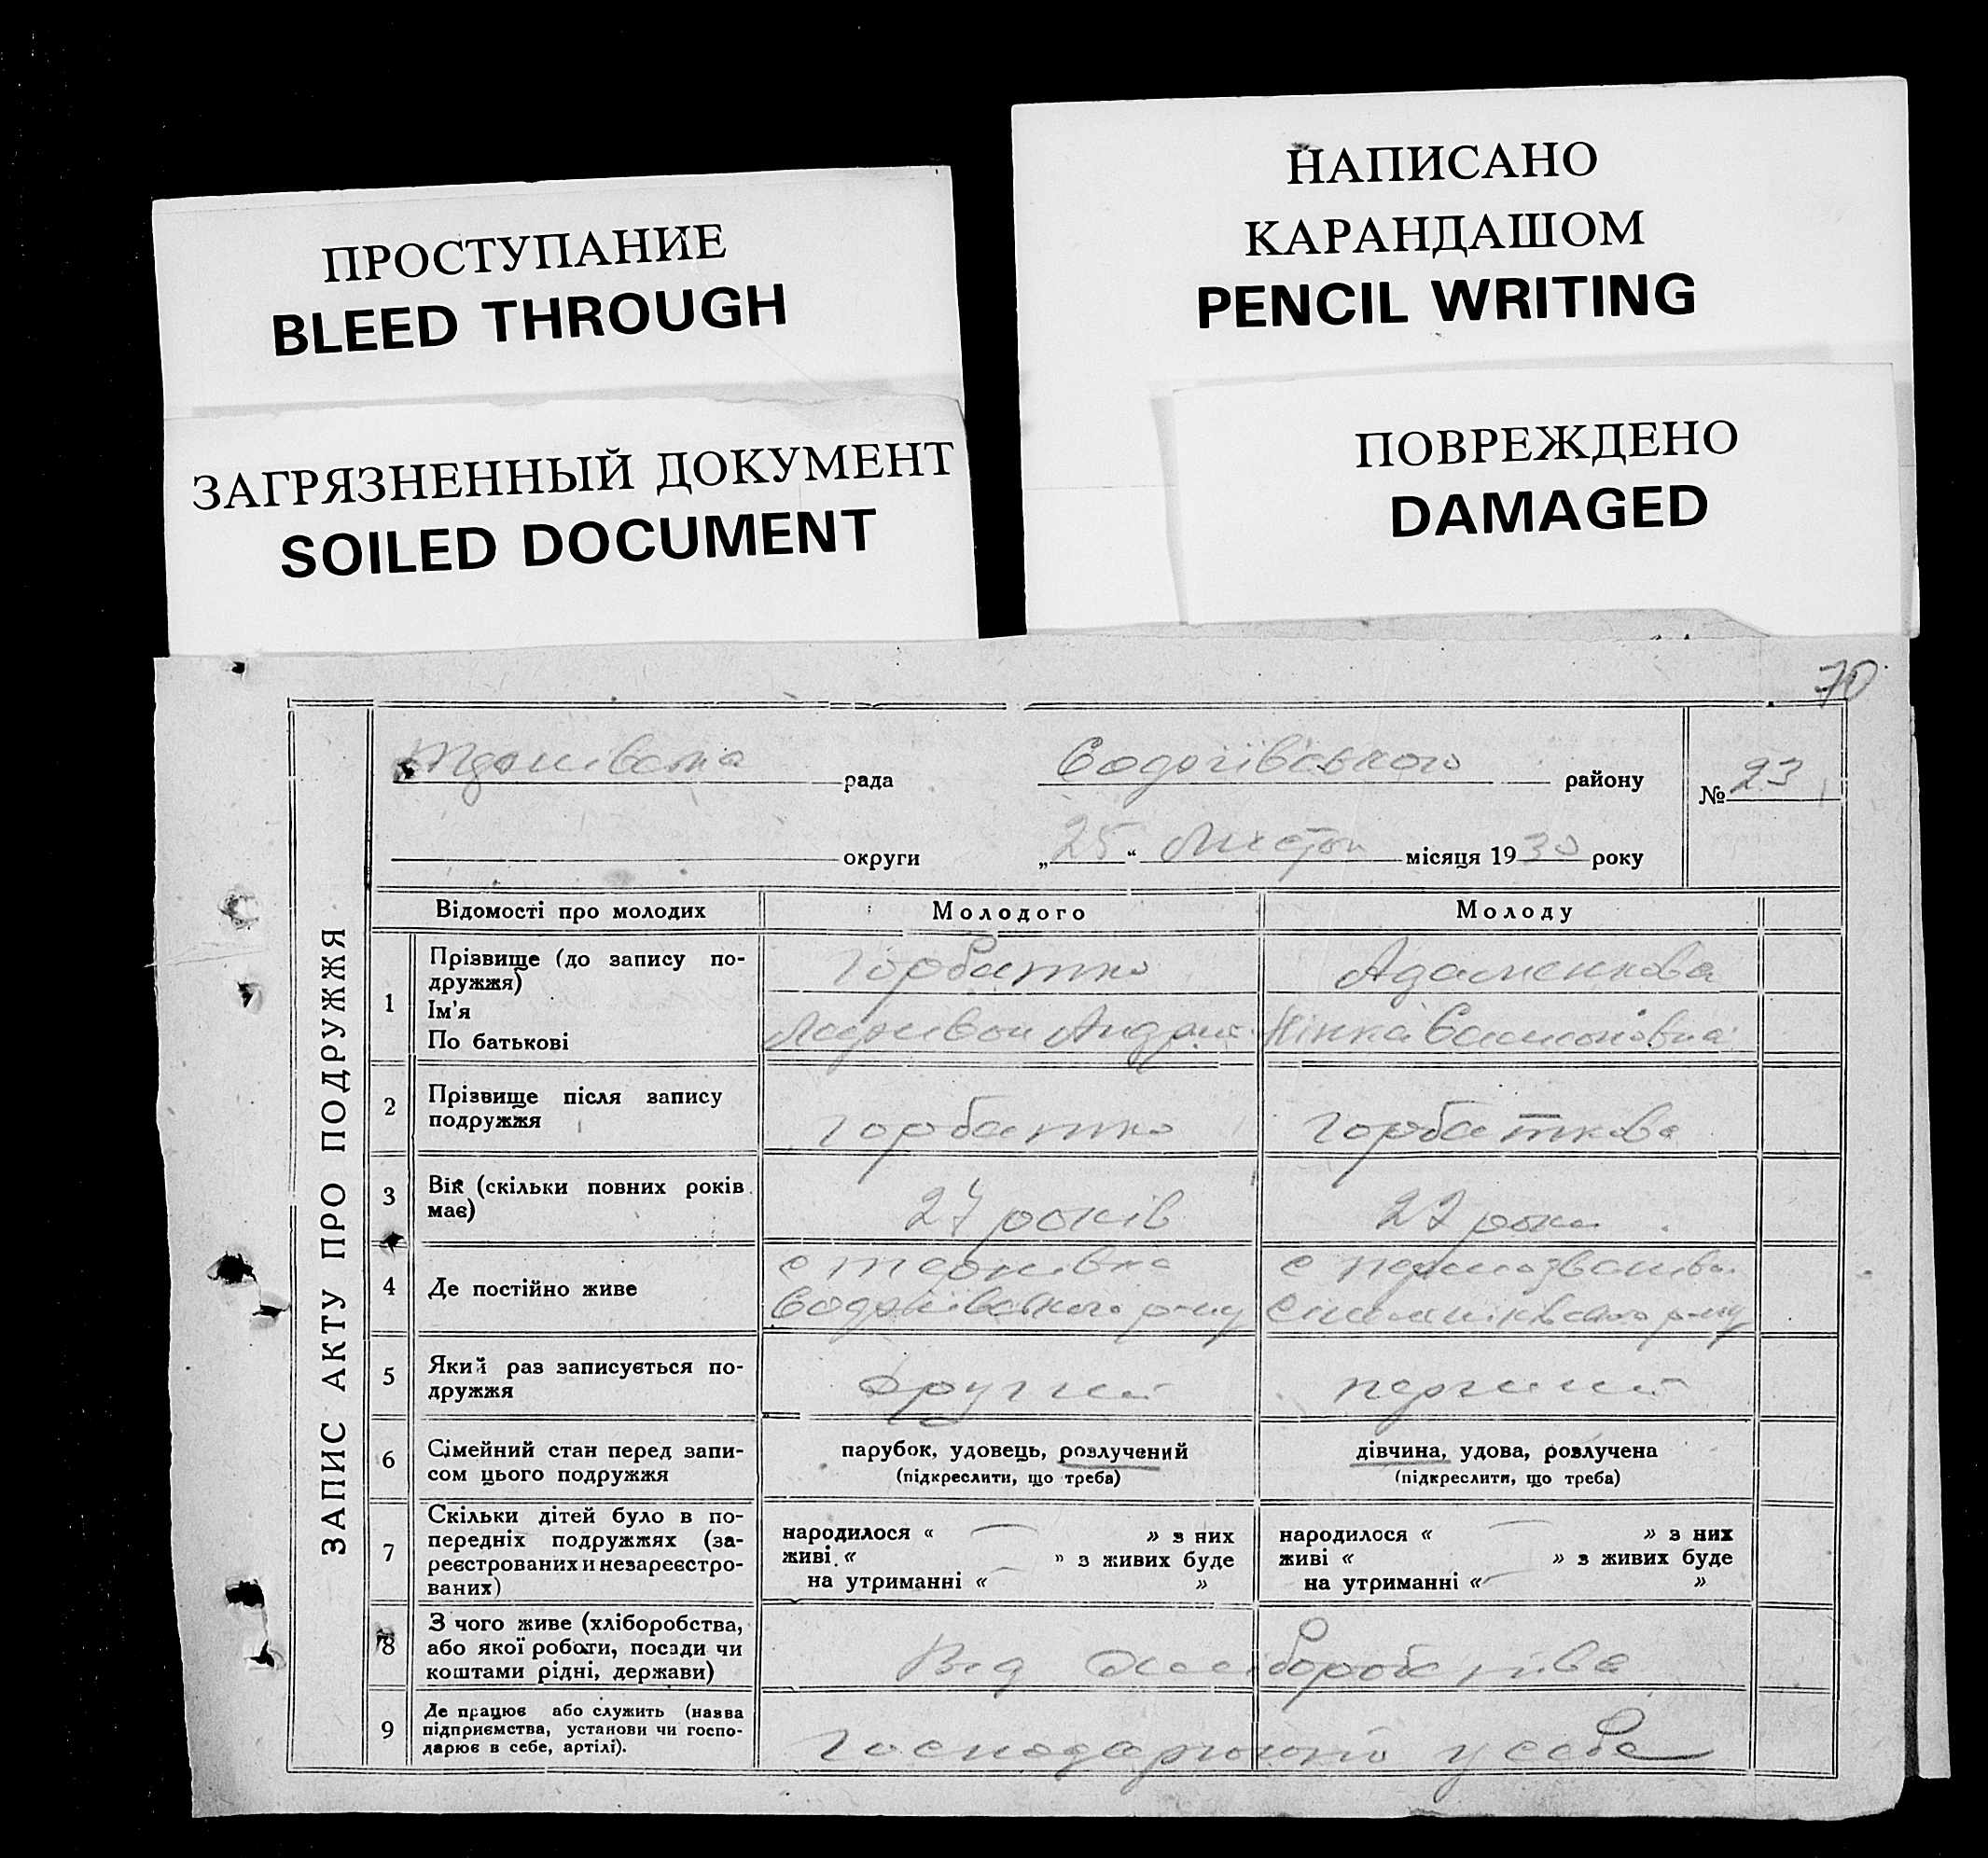 ПРОСТУПАНИЕ
BLEED THROUGH
ЗАГРЯЗНЕННЫЙ ДОКУМЕНТ
SOILED DOCUMENT
НАПИСАНО
КАРАНДАШОМ
PENCIL WRITING
ПОВРЕЖДЕНО
DAMAGED
70
ЗАПИС АКТУ ПРО ПОДРУЖЖЯ
рада
району
№ 23
округи „25“ місяця 1930 року
Відомості про молодих Молодого Молоду
1 Прізвище (до запису по-
дружжя) Горбатко Адаменкова
Ім'я
По батькові
2 Прізвище після запису
подружжя Горбатко Горбаткова
3 Вік (скільки повних років
має) 27 років 22 роки
4 Де постійно живе
5 Який раз записується по-
дружжя другий перший
6 Сімейний стан перед запи-
сом цього подружжя
парубок, удовець, розлучений
(підкреслити, що треба)
дівчина, удова, розлучена
(підкреслити, що треба)
7 Скільки дітей було в по-
передніх подружжях (за-
реєстрованих и незареєстро-
ваних)
народилося « » з них
живі « » з живих буде
на утриманні « »
народилося « » з них
живі « » з живих буде
на утриманні « »
8 З чого живе (хліборобства,
або якої роботи, посади чи
коштами рідні, держави)
Від хліборобства
9 Де працює або служить (назва
підприємства, установи чи госпо-
дарює в себе, артілі).
Господарюють у себе